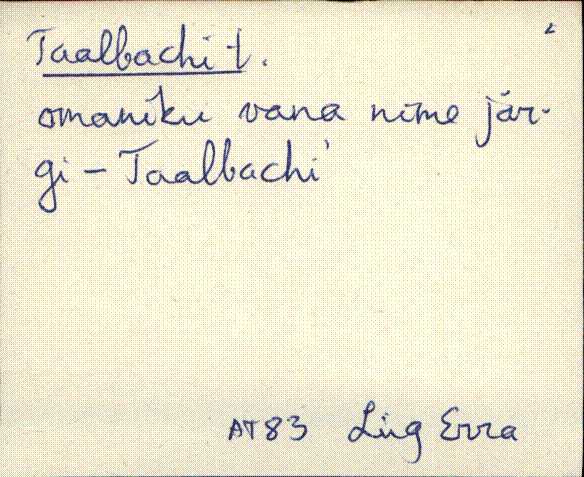 Taalbachi t.
omaniku vana nime jär-
gi - Taalbachi
AT83 Lüg Erra